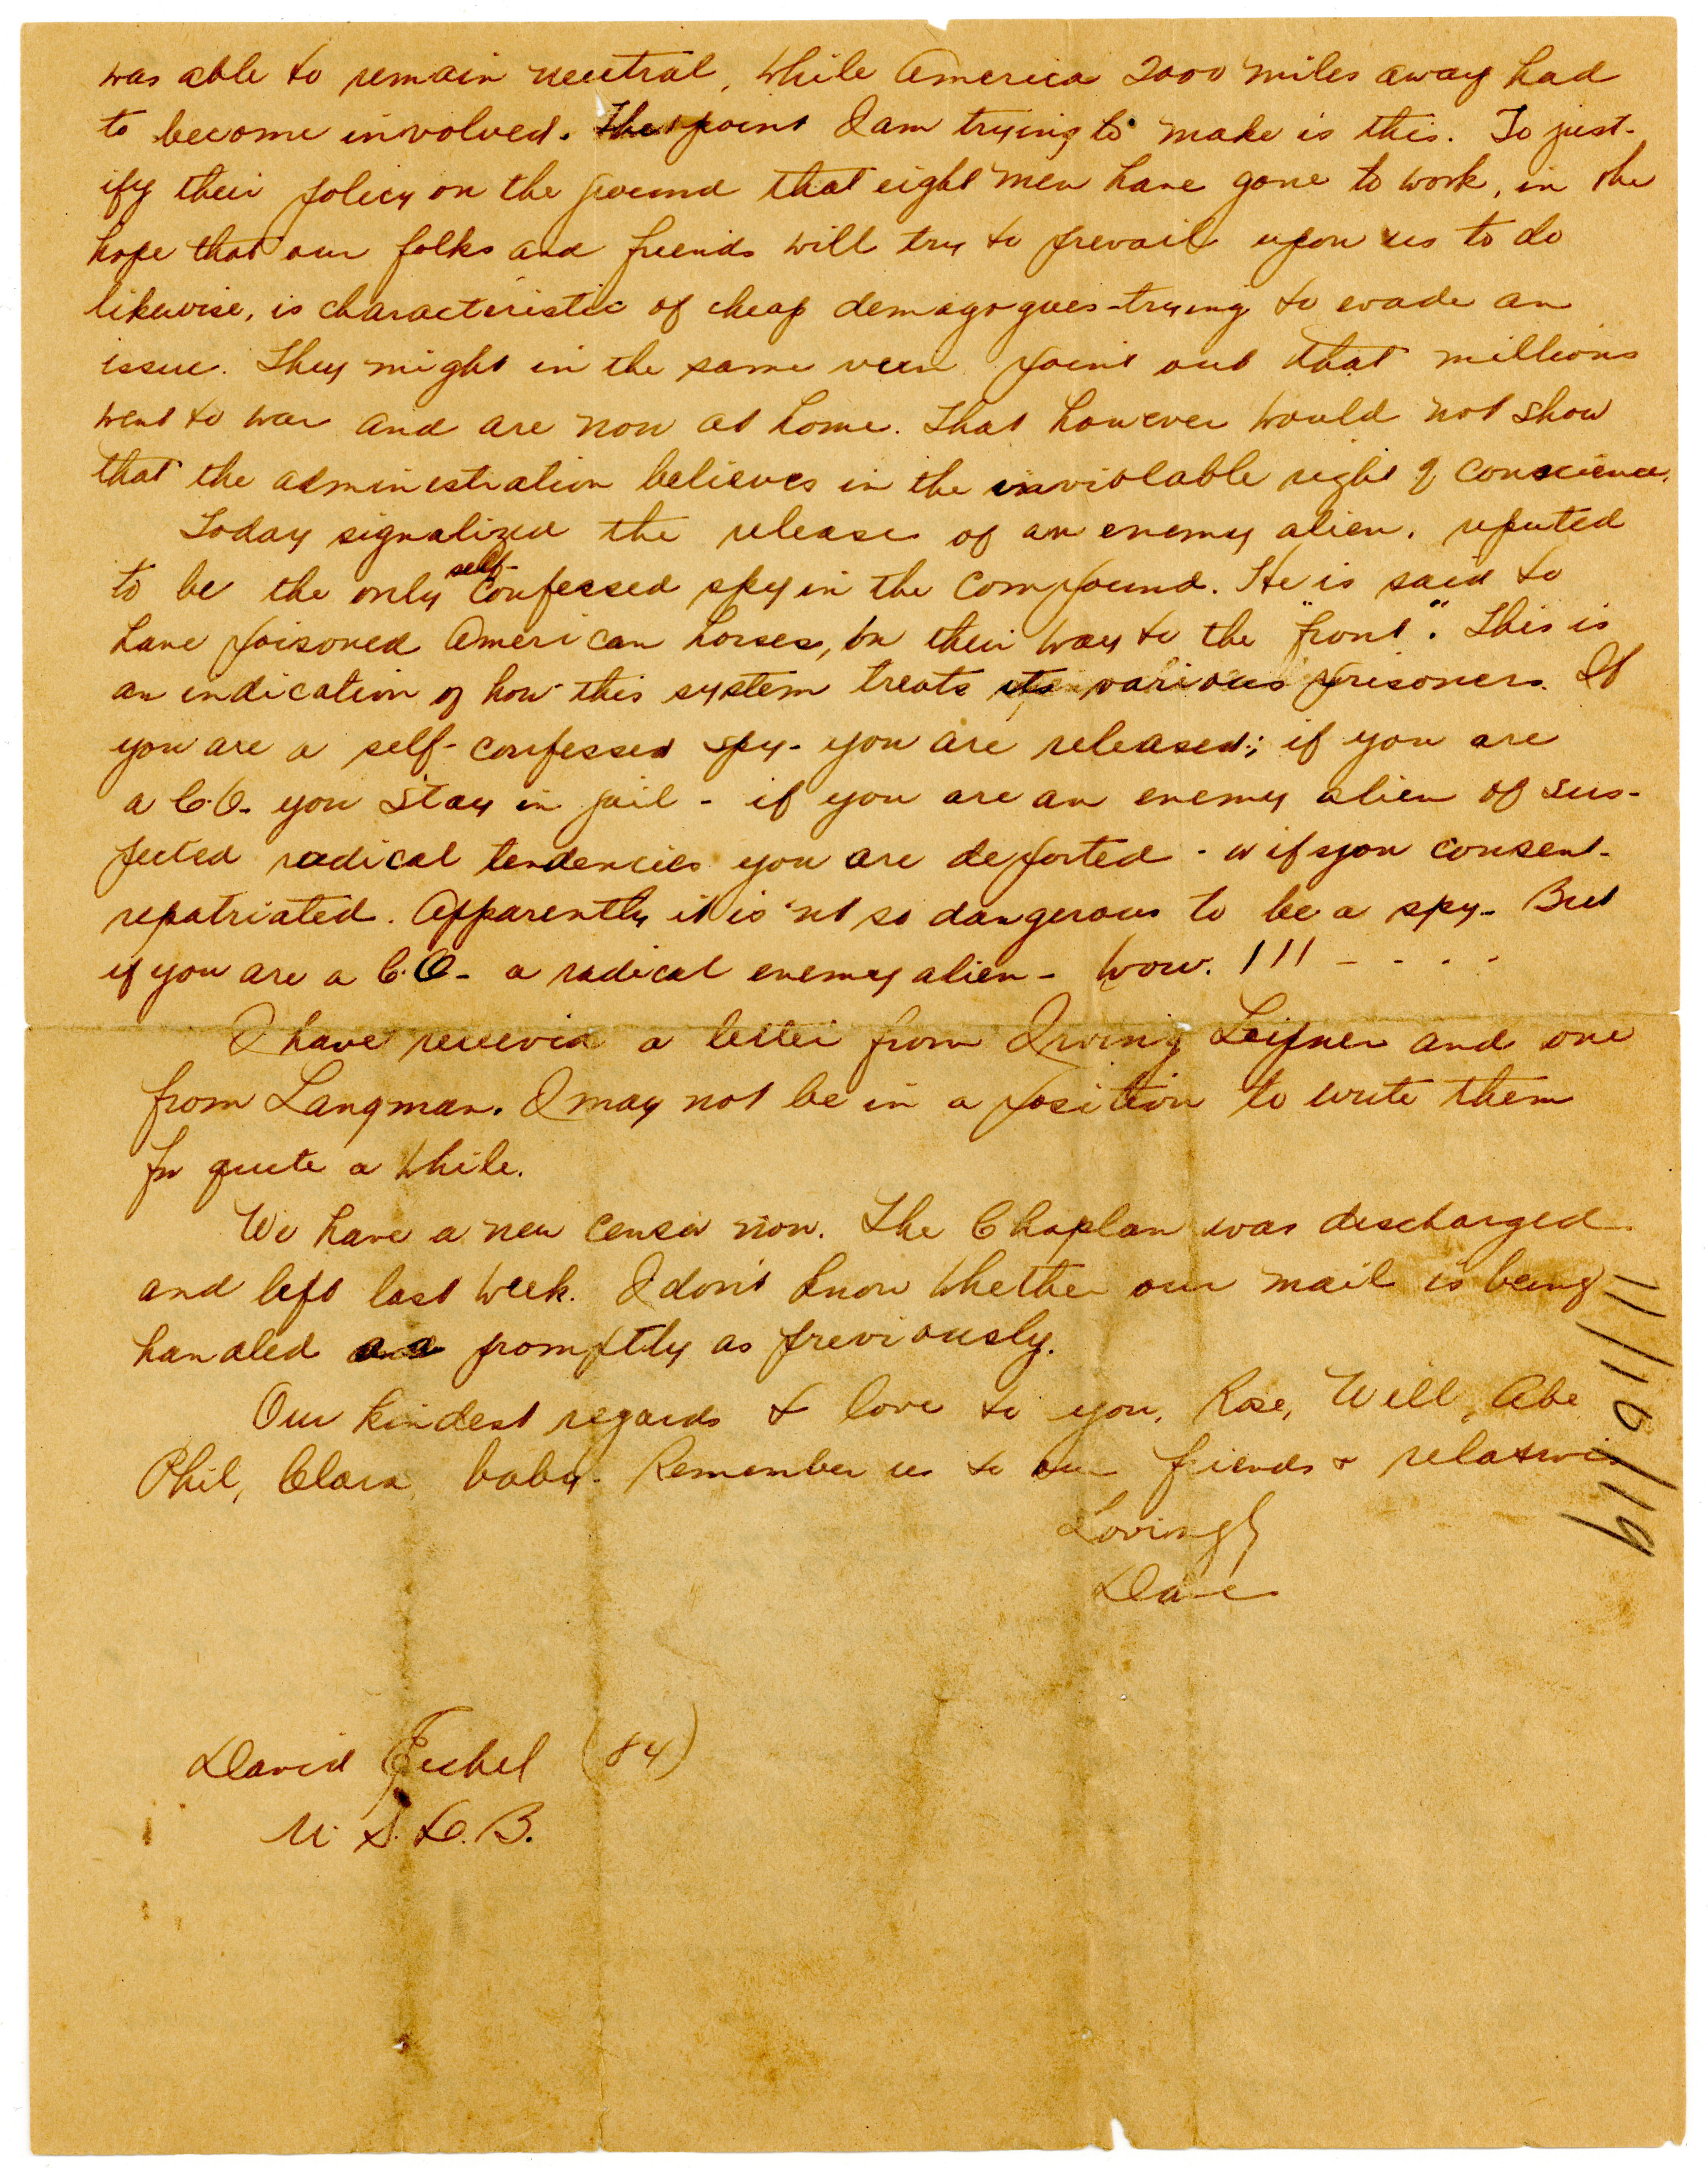 was able to remain neutral, while America 2000 miles away had
to become involved. The point I am trying to make is this. To just-
ify their policy on the ground that eight men have gone to work, in the
hope that our folks and friends will try to prevail upon us to do
likewise, is characteristic of cheap demagogues - trying to evade an
issue. They might in the same vein point out that millions
went to war and are now at home. That however would not show
that the administration believes in the inviolable right of conscience.
Today signalized the release of an enemy alien, reputed
to be the only self-confessed spy in the compound. He is said to
have poisoned American horses, on their way to the "front". This is
an indication of how this system treats its various prisoners. If
you are a self-confessed spy - you are released; if you are
a C.O. you stay in jail - if you are an enemy alien of sus-
pected radical tendencies you are deported - or if you consent -
repatriated. Apparently it is 'nt so dangerous to be a spy - But
if you are a C.O. - a radical enemy alien - wow. !!! - - - -
I have received a letter from Irving and one
from Langman. I may not be in a position to write them
for quite a while.
We have a new censor now. The Chaplan was discharged
and left last week. I don't know whether our mail is being
handled as promptly as previously.
Our kindest regards & love to you, Rose, Will, Abe
Phil, Clara, baby. Remember us to our friends & relatives
Lovingly
Dave
David Eichel (84)
U.S.D.B.
11/16/19